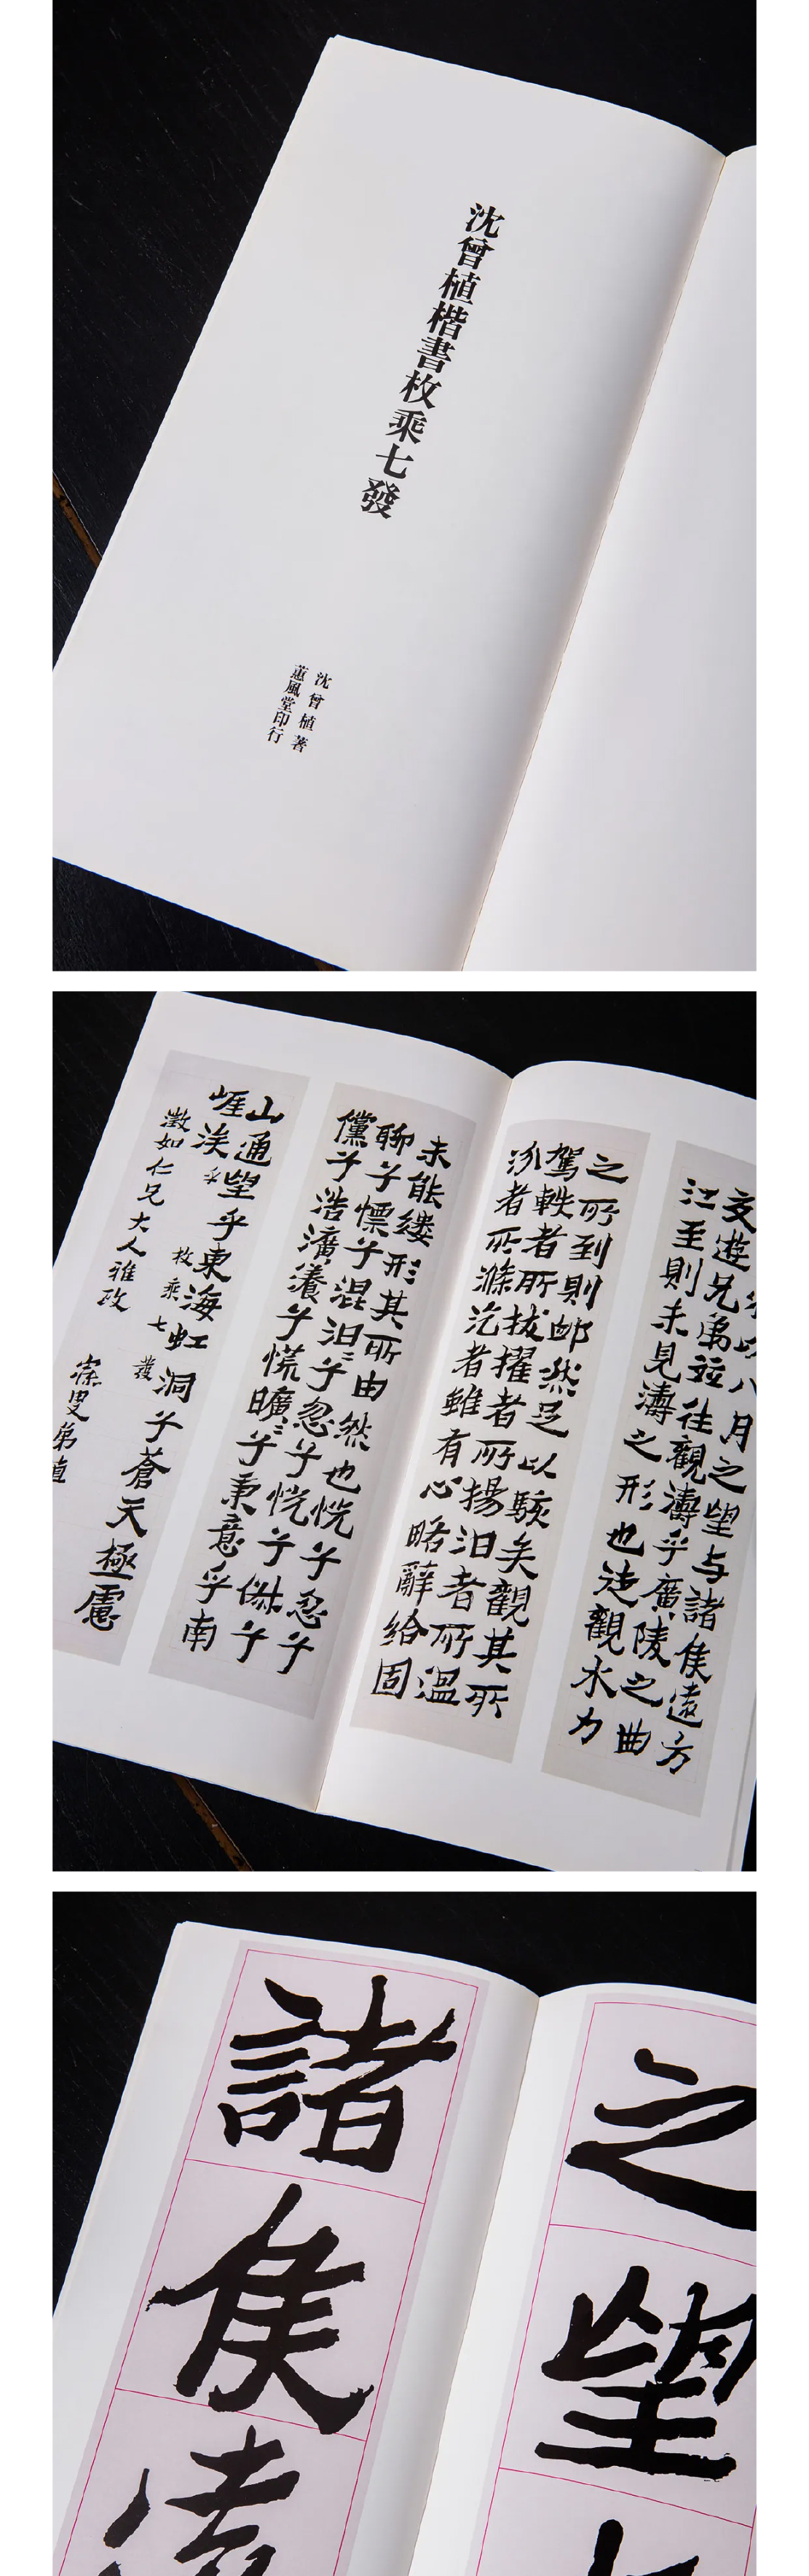 沈曾植楷書枚乘七發
沈曾植著
蕙風堂印行
以八月之望与諸侯遠方
交遊兄弟竝往觀濤乎廣陵之曲
江至則未見濤之形也徒觀水力
之所到則卹然足以駭矣觀其所
駕軼者所拔擢者所揚汩者所溫
汾者所滌汔者雖有心略辭给固
未能縷形其所由然也恍乎忽乎
聊乎慓乎混汩〻乎忽乎恍乎俶乎
儻乎浩瀇瀁乎慌曠〻乎秉意乎南
山通望乎東海虹洞乎蒼天極慮
崖涘乎
枚乘七發
澂如仁兄大人雅政
寐叟弟植
之望
諸侯遠